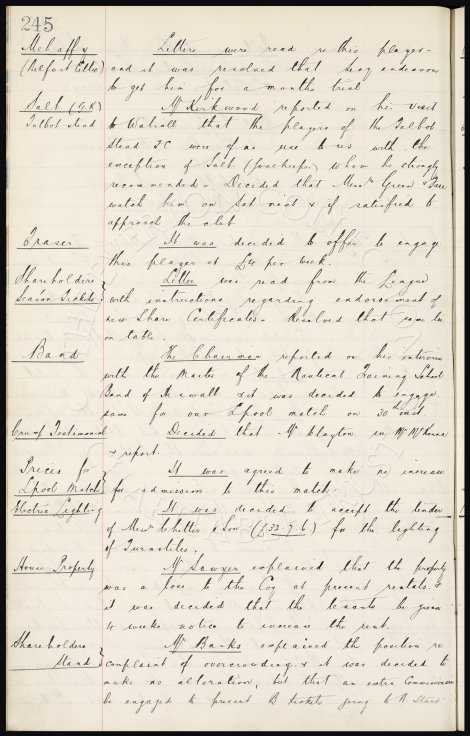 245
Mehaffy Letters were read re this player-
(Belfast Celtic) and it was resolved that Secy endeavour
to get him for a months trial
Salt (G.K) Mr Kirkwood reported on his visit
Talbot Stead to Walsall that the players of the Talbot
Stead FC were of no use to us with the
exception of Salt (Goalkeeper) whom he strongly
recommended - Decided that Messrs Green &
watch him on Sat next & if satisfied to
approach the club
Fraser It was decided to offer to engage
this player at £4 per week.
Shareholders Letter was read from the League
Season Tickets with instructions regarding endorsement of
new Share Certificates - Resolved that same lie
on table.
Band The Chairman reported on his interview
with the Master of the Nautical Training School
Band of Heswall & it was decided to engage
same for our Lpool match on 30th inst
Testimonial Decided that Mr Clayton see Mr McKenna
& report.
Prices for It was agreed to make no increase
Lpool Match for admission to this match
Electric Lighting It was decided to accept the tender
of Messrs & Son (£33.7.6) for the lighting
of Turnstiles.
House Property Mr Sawyer explained that the property
was a loss to the Coy at present rentals &
it was decided that the tenants be given
4 weeks notice to increase the rent.
Shareholders Mr Banks explained the position re
Stand complaint of overcrowding & it was decided to
make no alteration, but that an extra Commissionaire
be engaged to prevent B tickets going to A Stand